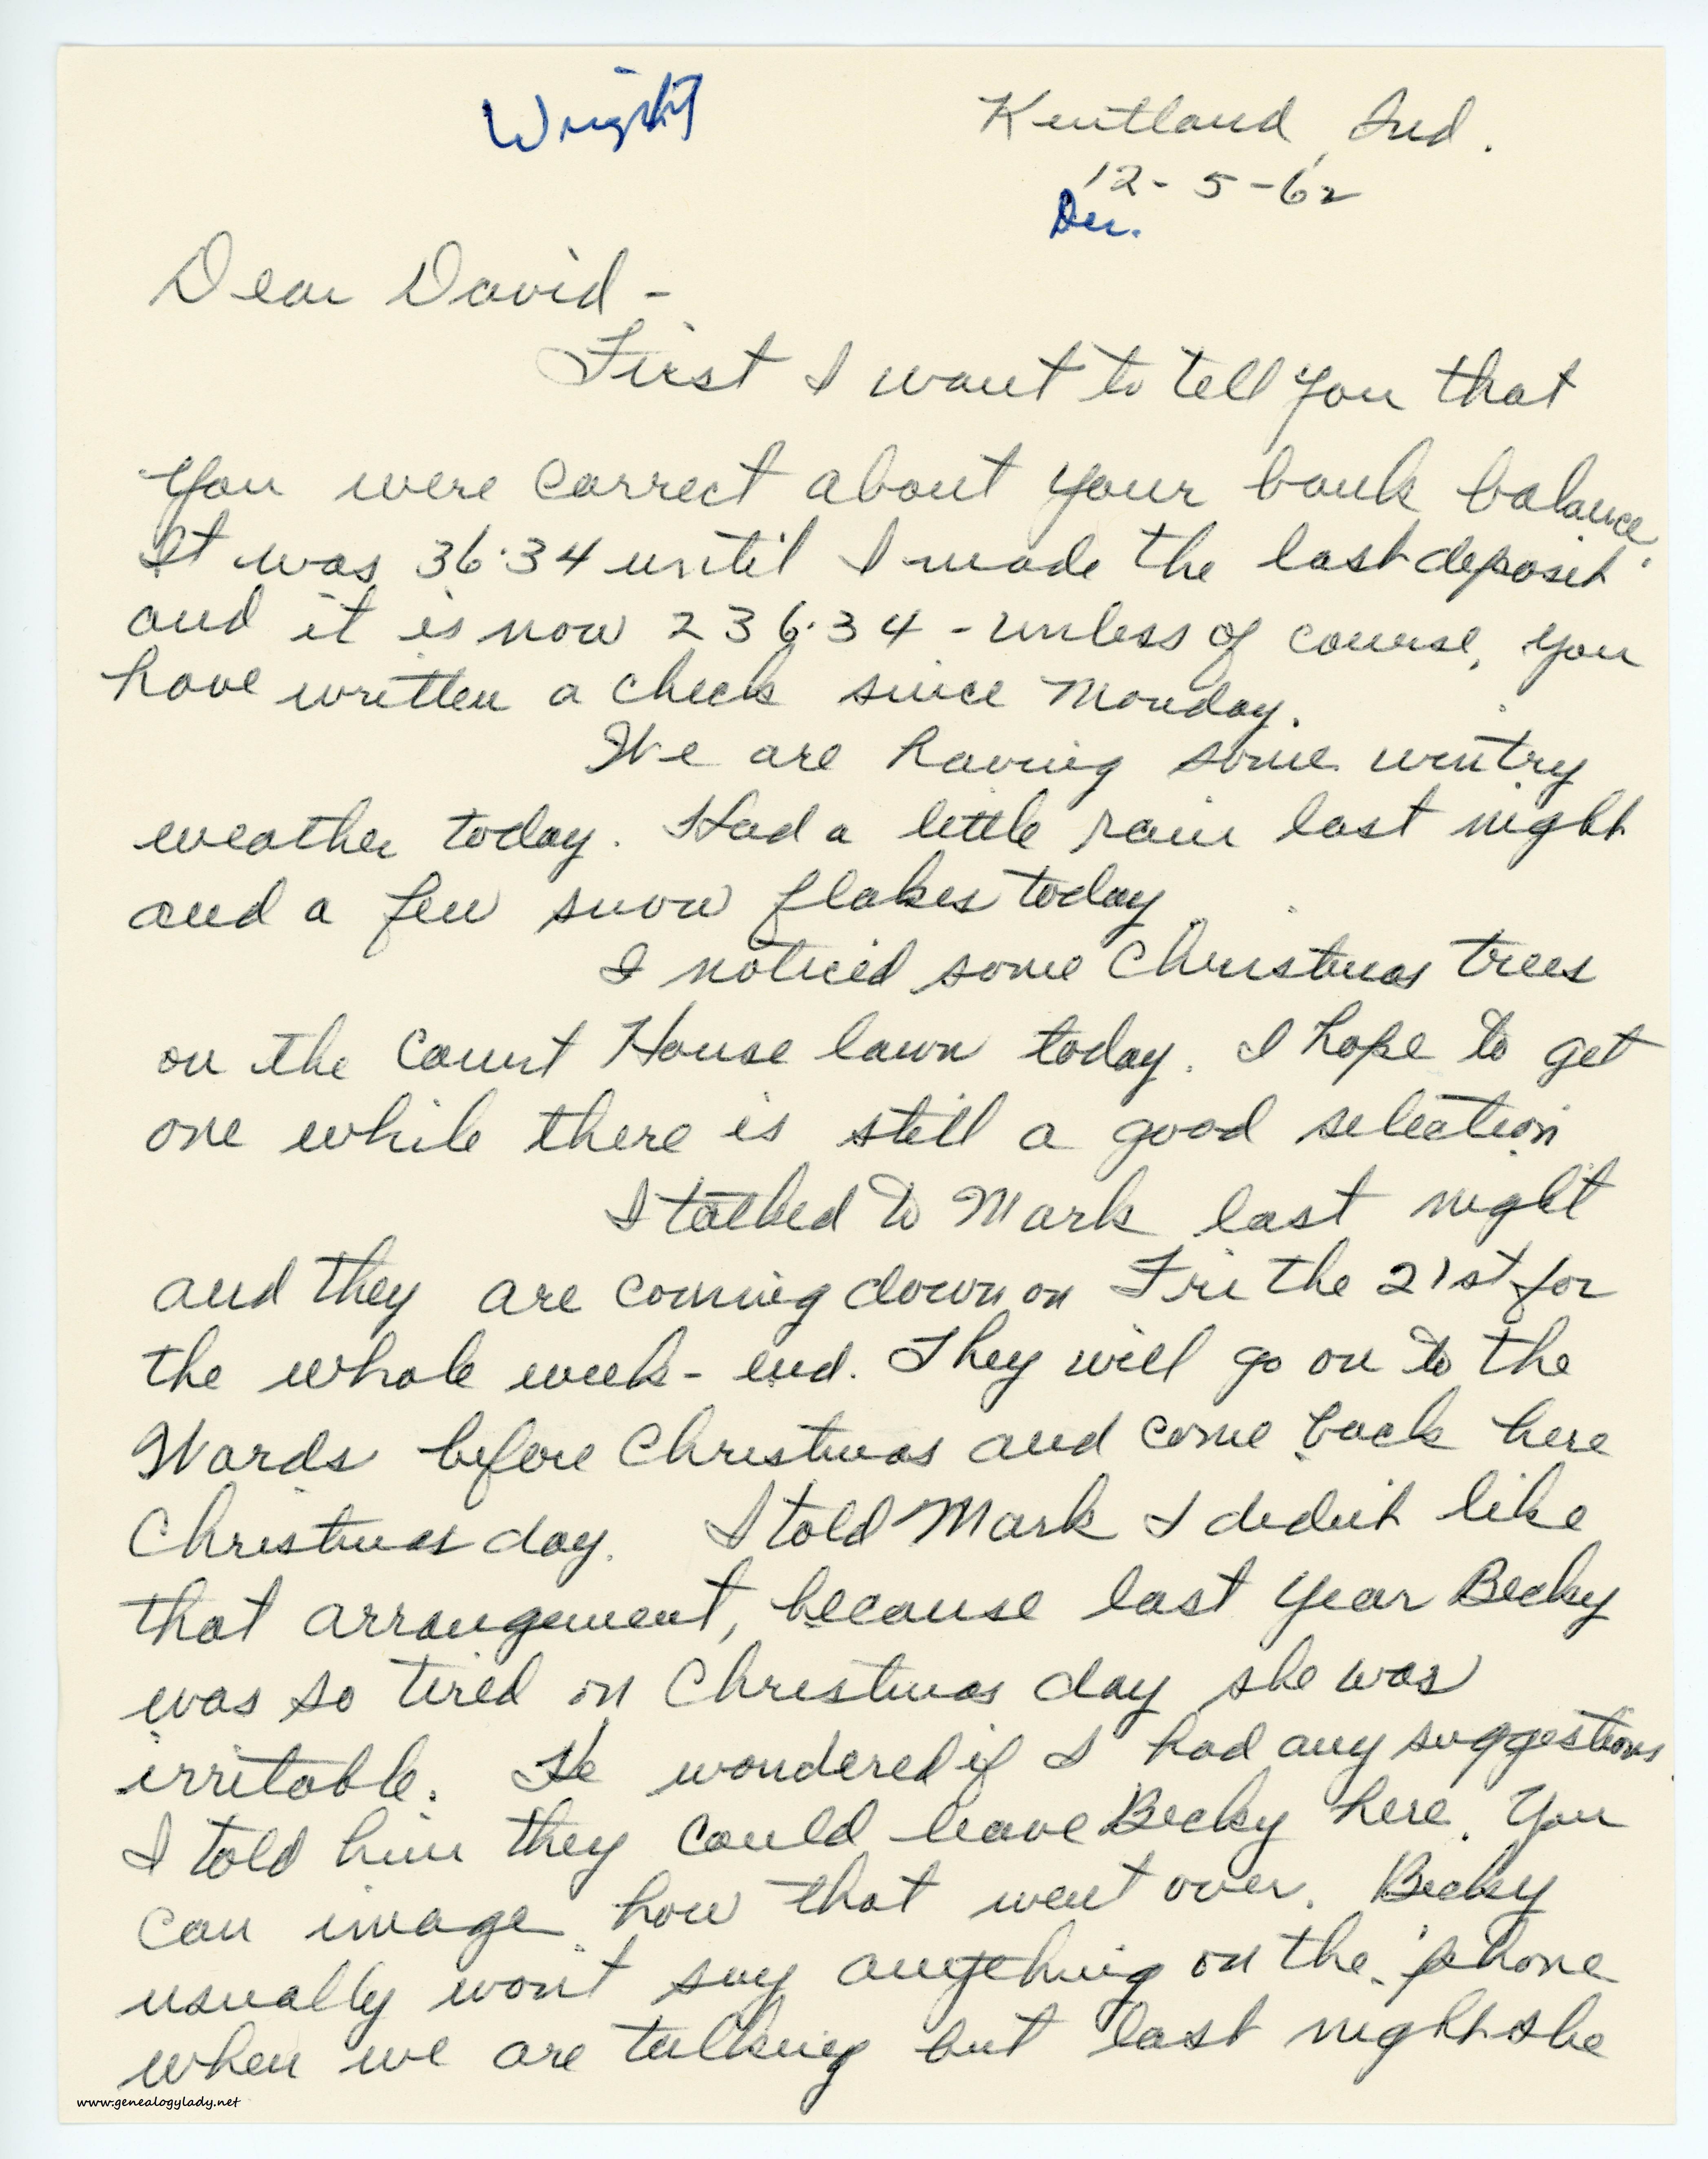 Wright
Kentland, Ind.
12-5-62
Dec.
Dear David -
First I want to tell you that
you were correct about your bank balance.
It was 36.34 until I made the last deposit
and it is now 236.34 - unless of course, you
have written a check since Monday.
We are having some wintry
weather today. Had a little rain last night
and a few snow flakes today.
I noticed some Christmas trees
on the Court House lawn today. I hope to get
one while there is still a good selection.
I talked to Mark last night
and they are coming down on Fri the 21st for
the whole week-end. They will go on to the
Wards before Christmas and come back here
Christmas day. I told Mark I didn't like
that arrangement, because last year Becky
was so tired on Christmas day she was
irritable. He wondered if I had any suggestions.
I told him they could leave Becky here. You
can image how that went over. Becky
usually won't say anything on the 'phone
when we are talking but last night she
www.genealogylady.net